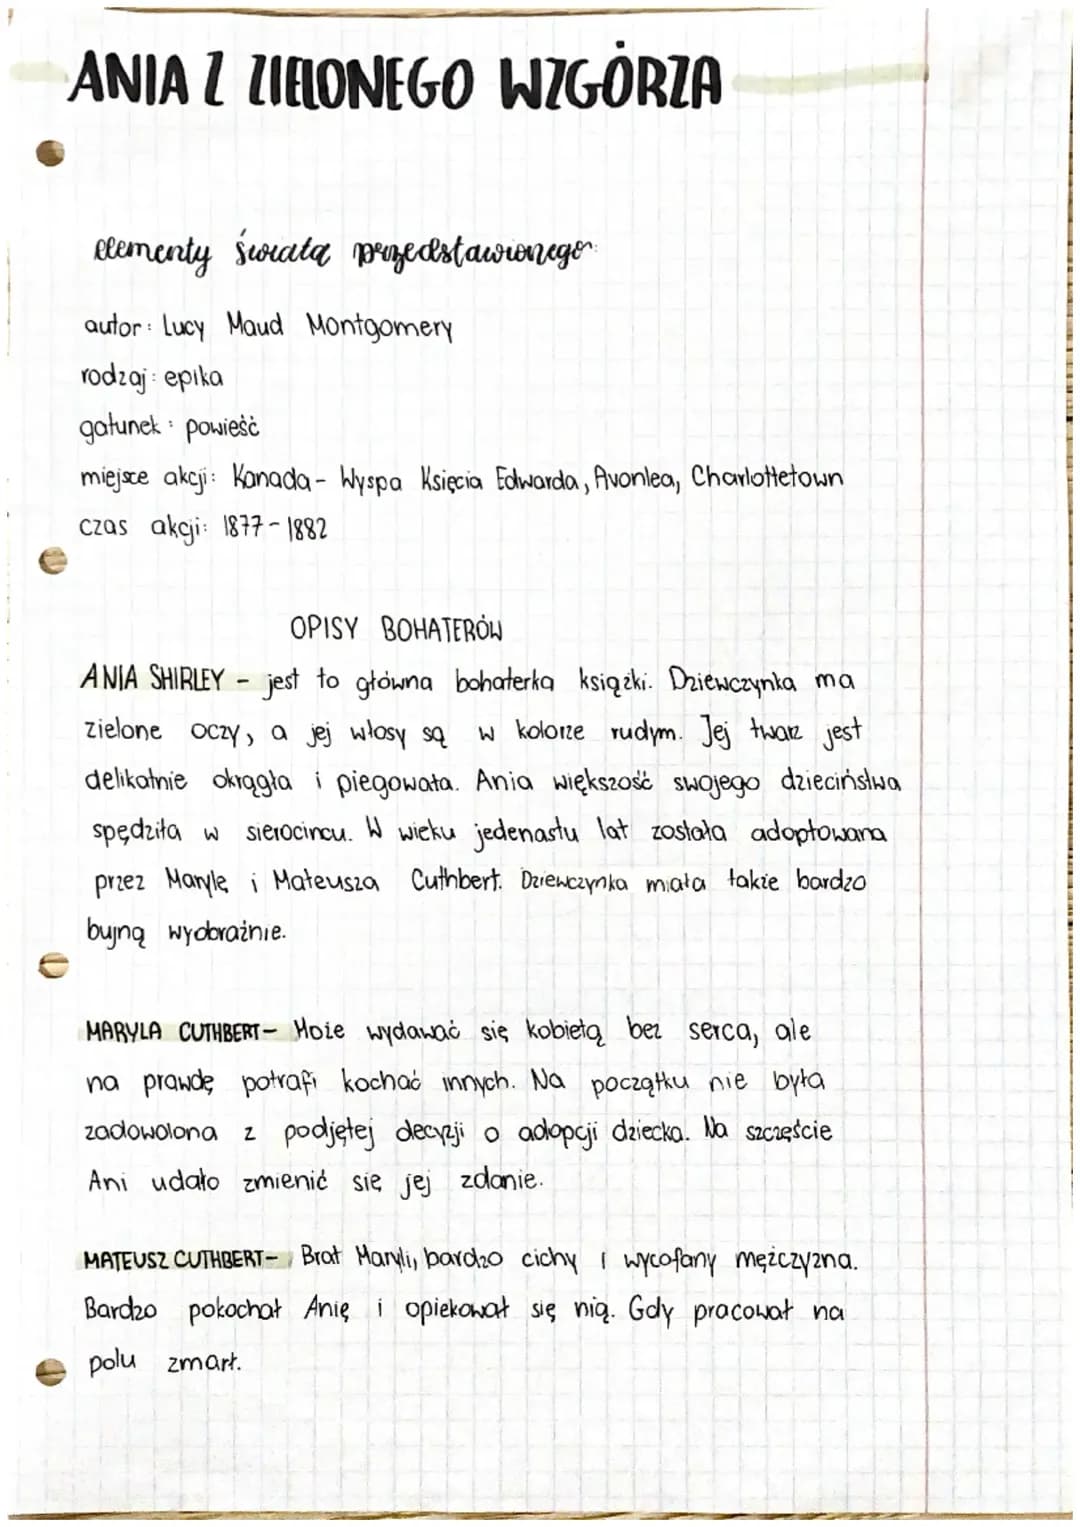 ANIA Z ZIELONEGO WZGÓRZA
elementy świata przedstawionego:
autor: Lucy Maud Montgomery
rodzaj: epika
gatunek: powieść
miejsce akcji: Kanada - Wyspa Księcia Edwarda, Avonlea, Charlottetown
czas akcji: 1877 - 1882
OPISY BOHATERÓW
ANIA SHIRLEY - jest to główna bohaterka książki. Dziewczynka ma
zielone oczy, a jej włosy są w kolorze rudym. Jej twarz jest
delikatnie okrągła i piegowata. Ania większość swojego dzieciństwa
spędziła w sierocincu. W wieku jedenastu lat została adoptowana
przez Marylę i Mateusza Cuthbert. Dziewczynka miała także bardzo
bujną wyobraźnie.
MARYLA CUTHBERT - Może wydawać się kobietą bez serca, ale
na prawdę potrafi kochać innych. Na początku nie była
zadowolona z podjętej decyzji o adopcji dziecka. Na szczęście
Ani udało zmienić się jej zdanie.
MATEUSZ CUTHBERT - Brat Maryli, bardzo cichy i wycofany mężczyzna.
Bardzo pokochał Anię i opiekował się nią. Gdy pracował na
polu zmarł.